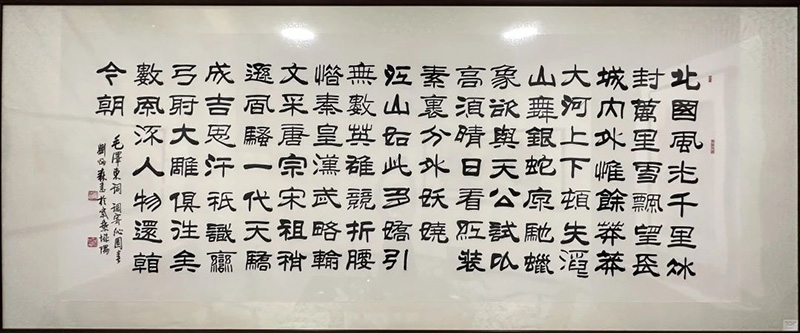 北國風光千里冰
封萬里雪飄望長
城內外惟餘莽莽
大河上下頓失滔
山舞銀蛇原馳蠟
象欲與天公試比
高須晴日看紅裝
素裹分外妖嬈
江山如此多嬌引
無數英雄競折腰
惜秦皇漢武略輸
文采唐宗宋祖稍
遜風騷一代天驕
成吉思汗祇識彎
弓射大雕俱往矣
數風流人物還看
今朝
毛澤東詞 調寄沁園春
劉炳森書於